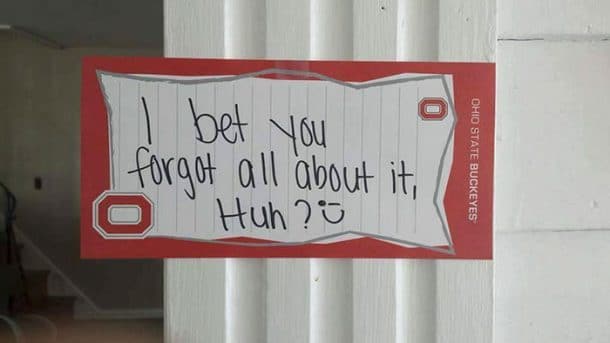 I bet you
forgot all about it,
Huh? :)
OHIO STATE BUCKEYES
O
O